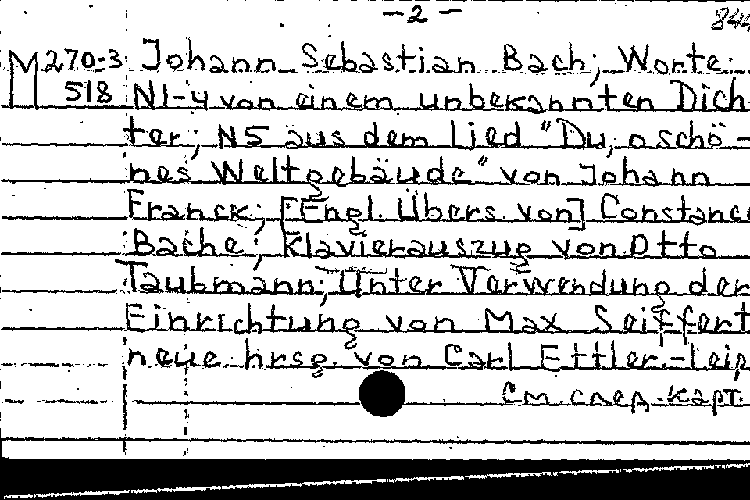 -2-
M 270-3 Johann Sebastian Bach; Worte:
518 N1-4 von einem unbekannten Dich
ter; N5 aus dem Lied "Du, o schö-
nes Weltgebäude" von Johann
Franck; [Engl. Übers von] Constance
Bache; Klavierauszug von Otto
Taubmann; Unter Verwendung der
Einrichtung von Max Seiffert
neue hrsg. von Carl Ettler.-Leip
См. след. карт.